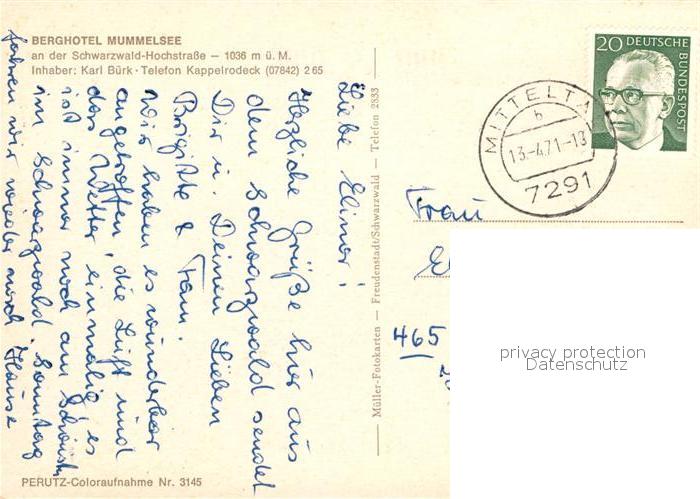 BERGHOTEL MUMMELSEE
an der Schwarzwald-Hochstraße – 1036 m ü. M.
Inhaber: Karl Bürk · Telefon Kappelrodeck (07842) 2 65
Liebe Elinor!
Herzliche Grüße hier aus
dem Schwarzwald sendet
Dir u. Deinen Lieben
Brigitte & Fam.
Wir haben es wunderbar
angetroffen, die Luft und
das Wetter einmalig, es
ist immer noch am Schönsten
im Schwarzwald. Sonntag
fahren wir wieder nach Hause
PERUTZ-Coloraufnahme Nr. 3145
Müller-Fotokarten – Freudenstadt/Schwarzwald – Telefon 2333
20 DEUTSCHE
BUNDESPOST
MITTELTAL
b
13.-4.71-18
7291
Frau
465
privacy protection
Datenschutz